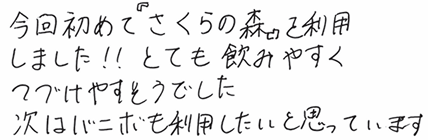 今回初めて『さくらの森』を利用
しました!!とても飲みやすく
つづけやすそうでした
次はバニボも利用したいと思っています